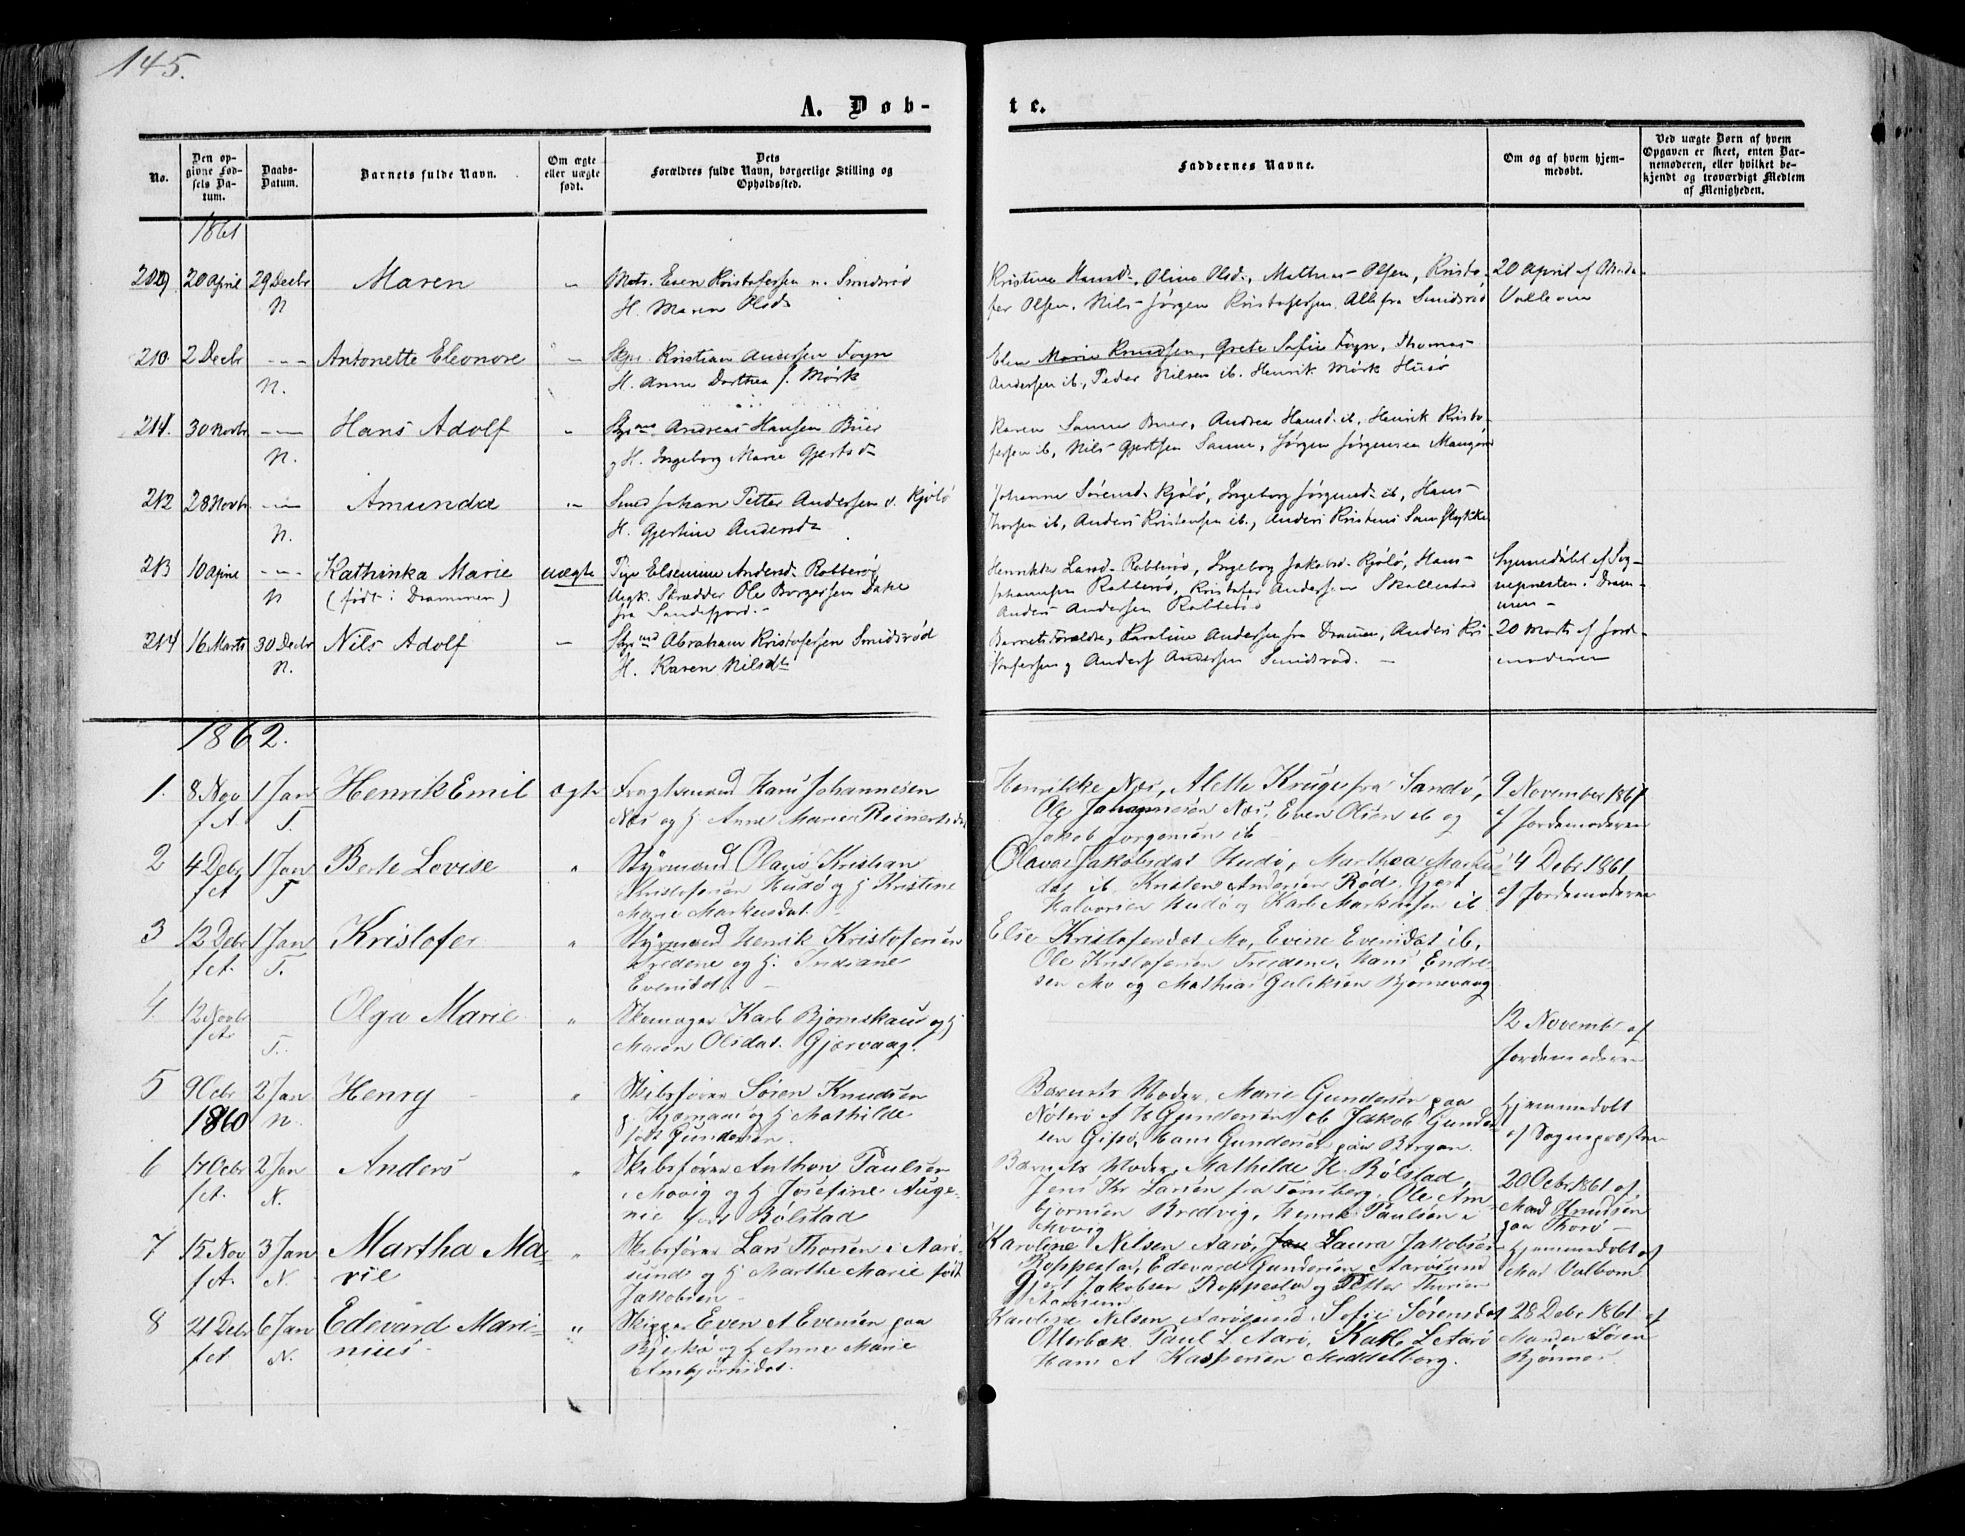 145.
A. Døb-
te.
No.
Den op-
givne Fød-
sels Da-
tum.
Daabs-
Datum.
Barnets fulde Navn.
Om ægte
eller uægte
født.
Dets
Forældres fulde Navn, borgerlige Stilling og
Opholdssted.
Faddernes Navne.
Om og af hvem hjem-
medøbt.
Ved uægte Børn af hvem
Opgaven er skeet, enten Bar-
nemoderen, eller hvilket be-
kjendt og troværdigt Medlem
af Menigheden.
1861
209 20 April 29 Decbr Maren " Mats. Even Kristofersen n. Smidsrød
N H. Maren Olsd.
Kristine Hansd., Oline Olsd., Mathias Olsen, Kristo-
fer Olsen, Nils Jørgen Kristofersen. Alle fra Smidsrød
20 April af
210 2 Decbr - - - Antonette Eleonore " Kristian Andersen Foyn
N. H. Anne Dorthea f. Mørk
Elen Marie Knudsen, Grete Sofie Foyn, Thomas
Andersen ib, Peder Nilsen ib. Henrik Mørk Husø
211. 30 Novbr - - - Hans Adolf " Andreas Hansen Buer
N. g H. Ingeborg Marie Gjertsd.
Karen Sanne Buer, Andrea Hansd. ib, Henrik Kristo-
fersen ib, Nils Gjertsen Sanne, Jørgen Jørgensen
212 28 Novbr - - - Amunda " Johan Petter Andersen v. Kjølø
N. H. Gjertine Andersd.
Johanne Sørensd. Kjøló, Ingeborg Jørgensd. ib, Hans
Thorsen ib, Anders Kristensen ib., Anders Kristens.
213 10 April - - - Kathinka Marie uægte Pige Elsemine Andersd. Robberø
N (født i Drammen) Ungk. Skrædder Ole Borgersen
fra Sandefjord. -
Henrikke Lansd. Robberø, Ingeborg Jakobsd. Kjøló, Hans
Johannsen Robberø, Kristofer Andersen Skallestad
Anders Andersen Robberø
Hjemmedøbt af Sog-
nepresten i Dram-
men -
214 16 Marts 30 Decbr Nils Adolf - Abraham Kristofersen Smidsrød
N. H. Karen Nilsdt.
Barnets Forældre, Karoline Andersen fra Drammen, Anders Kri-
stofersen g Anders Andersen Smidsrød. -
20 Marts af Jord-
moderen
1862.
1. 8 Nov 1 Jan Henrik Emil ægte Fragtemand Hans Johannesen
f A. T. Næs og H. Anne Marie Reinertsdat
Henrikke Næs, Alette Kruge fra Sandø,
Ole Johannesen Næs, Even Olsen ib og
Jakob Jørgensen ib
9 November 1861
af Jordemoderen
2 4 Debr 1 Jan Berte Lovise " Styrmand Olaus Kristian
f A T Kristofersen Hudø og H Kristine
Marie Markusdat.
Jakobsdat Hudø, Marthea Markus-
dat ib. Kristen Andersen Rød, Gjert
Halvorsen Hudø og Karl Markussen ib.
4 Debr 1861
af Jordemoderen
3 12 Debr 1 Jan Kristofer " Styrmand Henrik Kristofersen
f A. T. Tredene og H. Indiane
Evensdt. -
Else Kristofersdat Mo, Evine Evensdat ib,
Ole Kristofersen Tredene, Hans Endre-
sen Mo og Mathias Guliksen Bjørnevaag
4. 12 Novbr Olga Marie " Skomager Karl Bjørnskaus og H
f A. T. Maren Olsdat. Gjervaag.
12 November af
Jordemoderen
5 9 Ocbr 2 Jan Henry " Skibsfører Søren Knudsen
1860 N. Kjæmaas og H Mathilde
født Gundersen.
Barnets Moder, Marie Gundersen paa
Nøterø af H Gundersens ib Jakob Gunder-
sen Gipø, Hans Gundersen paa Bergan.
Hjemmedøbt
af Sognepræsten
6 17 Ocbr 2 Jan Anders " Skibsfører Anthon Paulsen
f A. N. i Movig og H Josefine Auge-
nie født Bølstad
Barnets Moder, Mathilde H. Bølstad,
Jens Kr Larsen fra Tønsberg, Ole Am-
bjørnsen Bredvig, Henrik Paulsen i
Movig
20 Ocbr 1861 af
Mad Knudsen
paa Thorø -
7 15 Nov 3 Jan Martha Ma- " Skibsfører Lars Thorsen i Aarø-
f A. N. rie sund og H Marthe Marie født
Jakobsen -
Karoline Nilsen Aarø, Laura Jakobsen
Roppestad, Edevard Gundersen Aarøsund
Gjert Jakobsen Roppestad og Petter Thorsen
Aarøsund
Hjemmedøbt af
Mad Valbom
8 21 Debr 6 Jan Edevard Mari- " Skipper Even A Evensen paa
f A. N. nius Bjerkø og H Anne Marie
Ambjørnsdat.
Karoline Nilsen Aarøsund, Sofie Sørensdat
Otterbæk, Paul L. Aarø, Karl L. Aarø
Hans A Kaspersen Middelborg.
28 Debr 1861 af
Madm Søren
Bjønnes